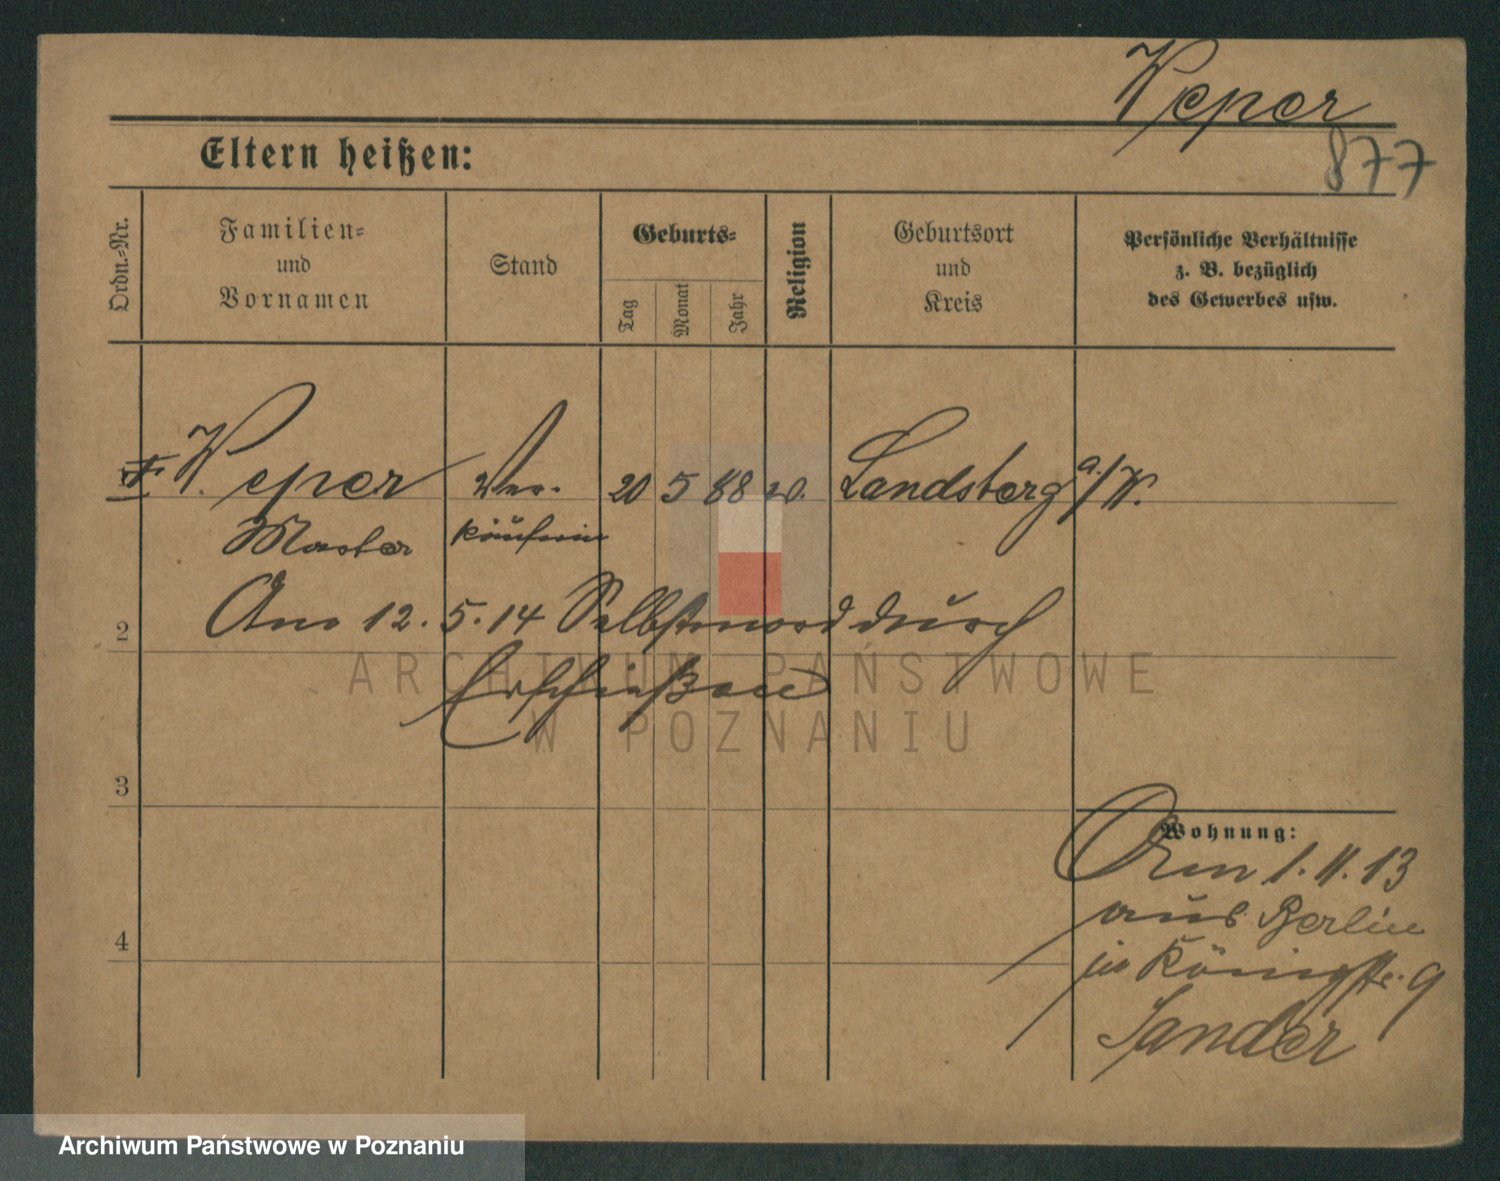 Weper
877
Eltern heißen:
Ordn.-Nr.
Familien- und Vornamen
Stand
Geburts-
Tag
Monat
Jahr
Religion
Geburtsort und Kreis
Persönliche Verhältnisse z. B. bezüglich des Gewerbes usw.
Weper Ver- 20 5 88 Landsberg a./W.
käuferin
2 Am 12. 5. 14 Selbstmord durch
Erschießen
3
Wohnung:
Am 1. 11. 13
aus Berlin
4
in Königstr. 9
Sander
ARCHIWUM PAŃSTWOWE
W POZNANIU
Archiwum Państwowe w Poznaniu